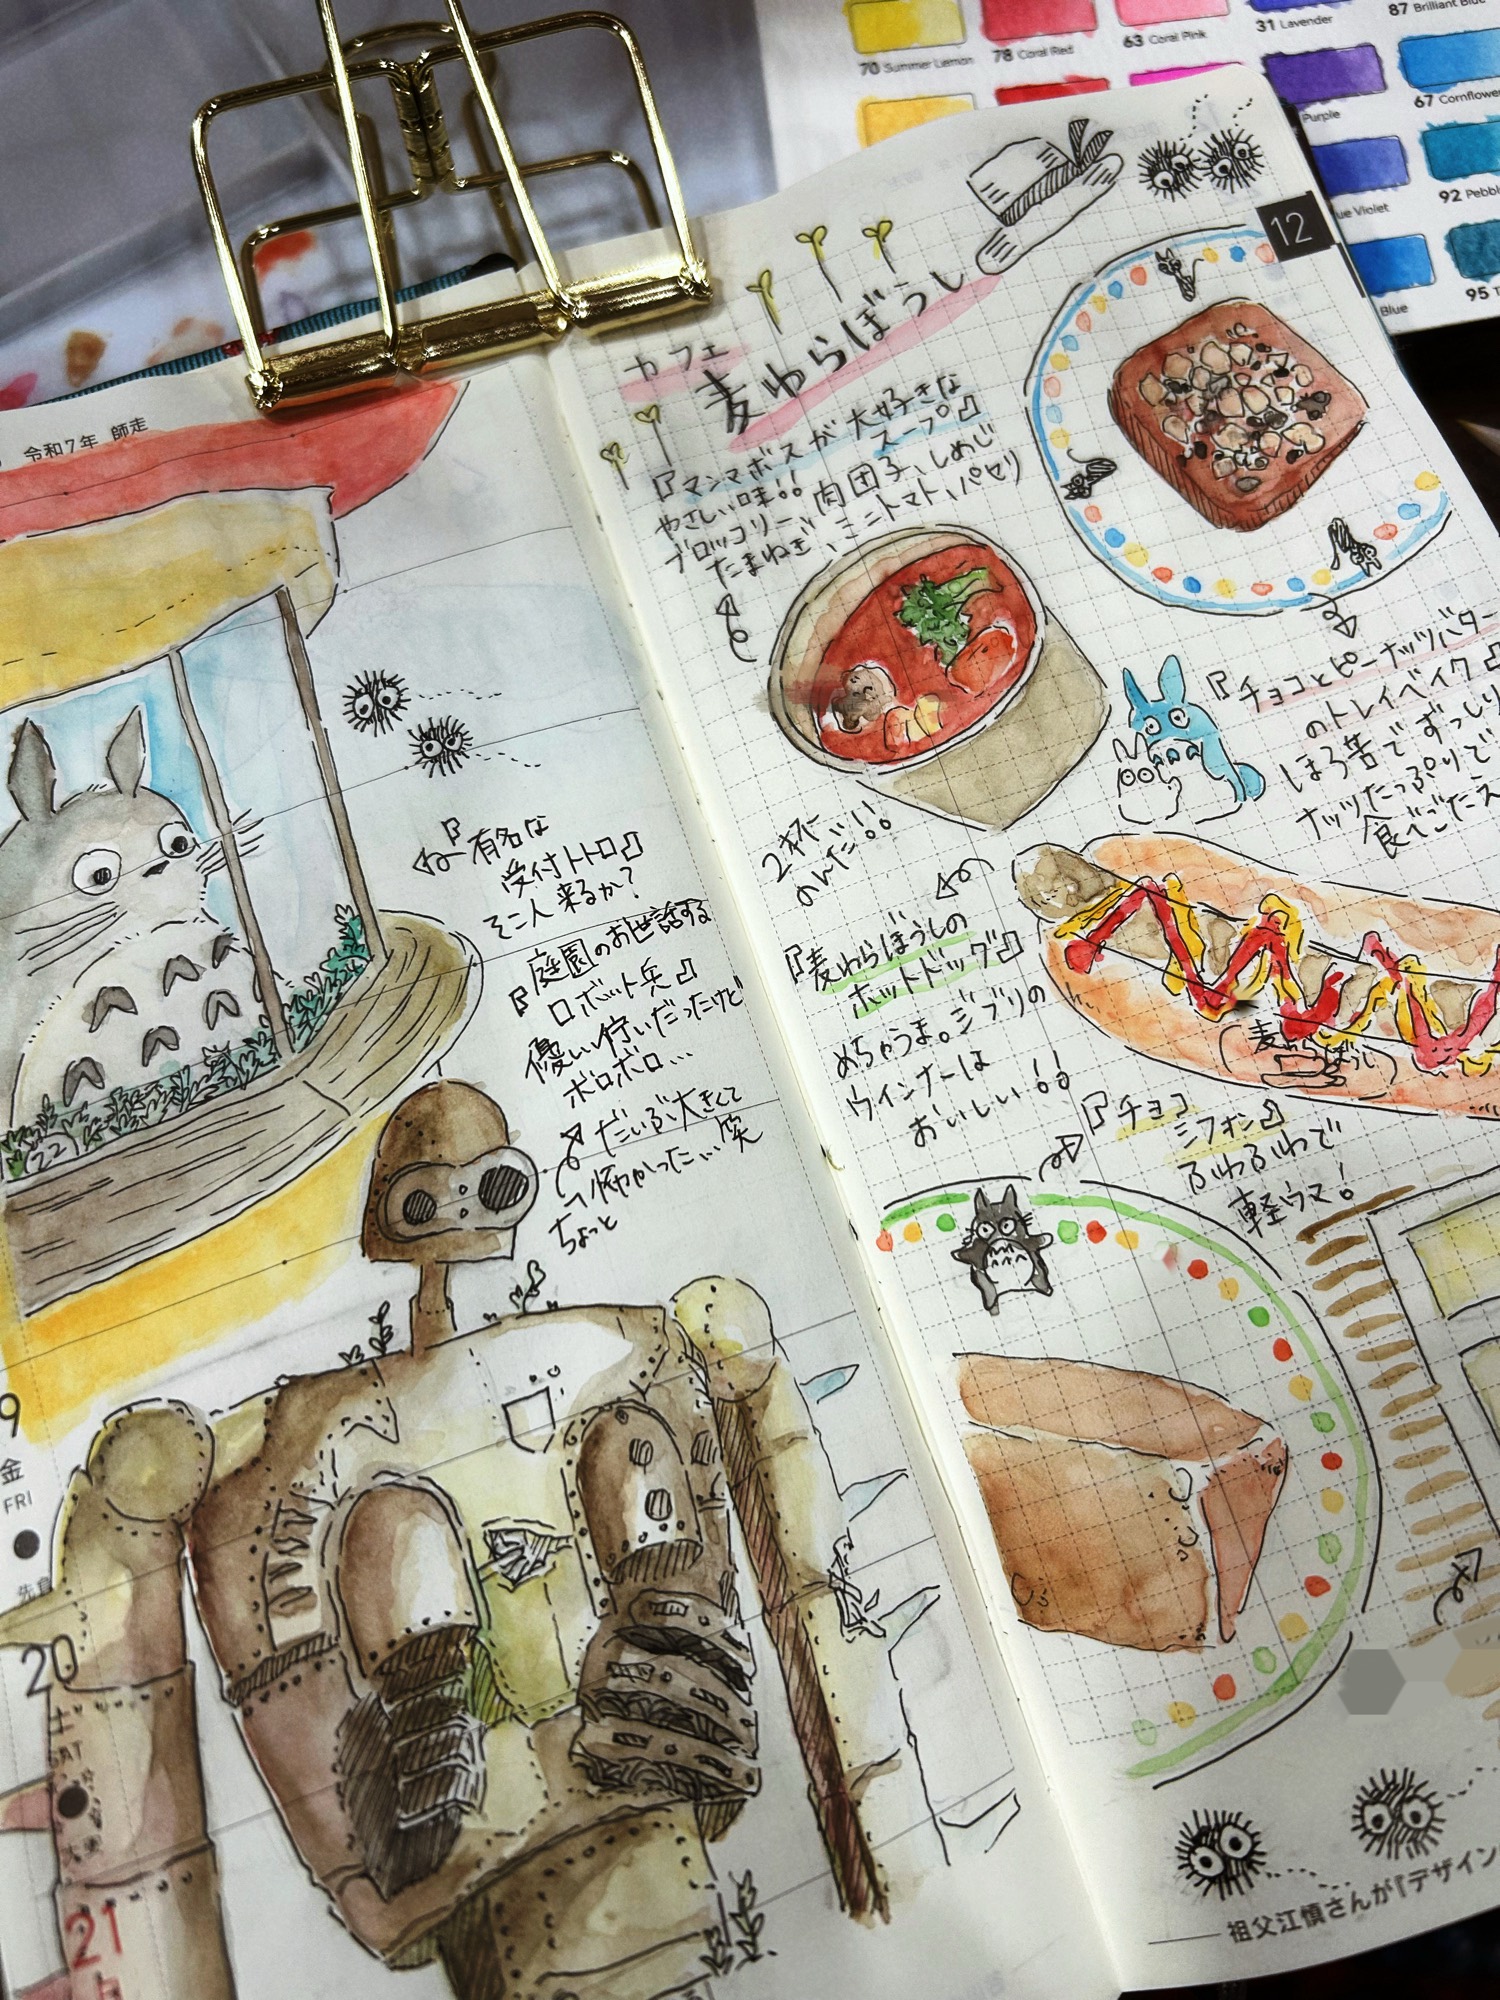 70 Summer Lemon
78 Coral Red
63 Coral Pink
31 Lavender
87 Brilliant Blue
67 Cornflower
Purple
ue Violet
92 Pebbl
Blue
95 T
令和7年 師走
『有名な
受付トトロ』
そこ人来るか?
『庭園のお世話する
ロボット兵』
優しい佇いだったけど
ボロボロ…
だいぶ大きくて
怖かった…笑
ちょっと
9
金
FRI
先負
20
土
SAT
大安
21
12
カフェ
麦わらぼうし
『マンマボスが大好きな
スープ』
やさしい味!!肉団子、しめじ
ブロッコリー、ミニトマト、パセリ
たまねぎ
2杯
のんだ!!
『チョコとピーナッツバター
のトレイベイク』
ほろ苦でずっしり
ナッツたっぷりで
食べごたえ
『麦わらぼうしの
ホットドッグ』
めちゃうま。ジブリの
ウインナーは
おいしい!!
麦わらぼうし
『チョコ
シフォン』
ふわふわで
軽ウマ!
祖父江慎さんが『デザイン